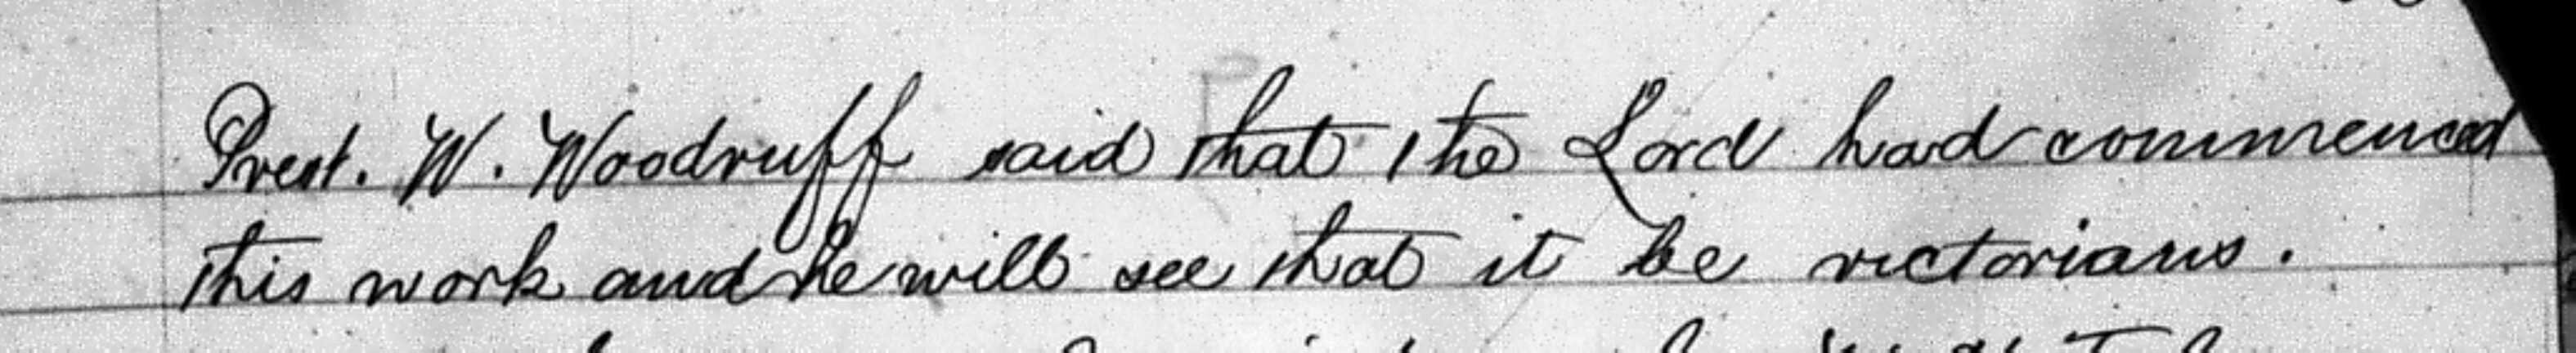 Prest. W. Woodruff said that the Lord had commenced
this work and he will see that it be victorians.